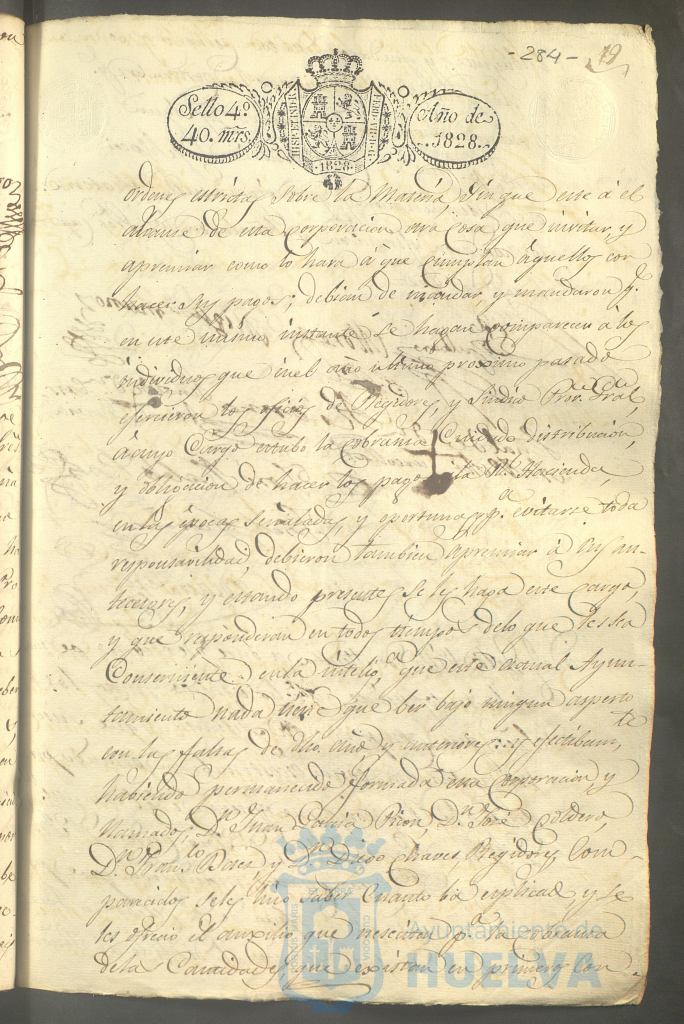 - 284 -
19
Sello 4º
40. mrs.
HISP. ET IND. R.
1828
Año de
1828.
ordenes estritas sobre la Materia, Sin que este á el
alcanse de esta corporacion otra cosa que invitar, y
apremiar como lo hara á que cumplan áquellos con
hacer sus pagos; debian de mandar y mandaron q.e
en este mismo instante se hagan compareser á los
individuos que en el año ultimo proximo pasado
ejercieron los ofisios de Regidores, y Sindico Pror. Gral,
á cuyo Cargo estubo la cobransa Cuidado distribucion,
y obligacion de hacer los pagos la Rl. Hacienda,
en las épocas señaladas, y oportunas p.a evitarse toda
responsavilidad, debieron tambien apremiar á sus an-
tecesores, y estando presentes se les haga este cargo,
y que responderan en todos tiempos delo que les sea
Conserniente en la intelig.a que este actual Ayun-
tamiento nada tiene que ber bajo ningun aspecto
con las faltas de dho. año y anteriores: y efectibam.te
habiendo permanecido formada esta Corporacion y
llamados D.n Juan Garcia D.n José Cordero,
D.n Fran.co y D.n Diego Chaves Regidores Com-
parecidos seles hiso saber Cuanto ba esplicado y se
les ofrecio el auxilio que nescesiten p.a la Cobransa
dela Cantidades que existan en primeros con-
Ayuntamiento de
HUELVA